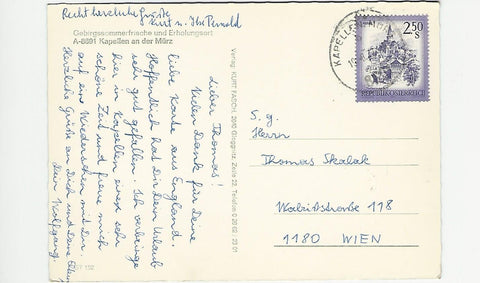 Recht herzliche Grüße
Kurt u. Ilse Pernold
Gebirgssommerfrische und Erholungsort
A-8691 Kapellen an der Mürz
Lieber Thomas!
Vielen Dank für Deine
liebe Karte aus England.
Hoffentlich hat Dir Dein Urlaub
sehr gut gefallen. Ich verbringe
hier in Kapellen eine sehr
schöne Zeit und freue mich
auf ein Wiedersehen mit Dir.
Herzliche Grüße an Dich und Deine Eltern
Dein Wolfgang.
Verlag KURT FASCH, 2640 Gloggnitz, Zeile 22, Telefon 0 26 62 / 23 01
KAPELLEN
2.50
S
REPUBLIK ÖSTERREICH
S. g.
Herrn
Thomas Skalak
118
1180 WIEN